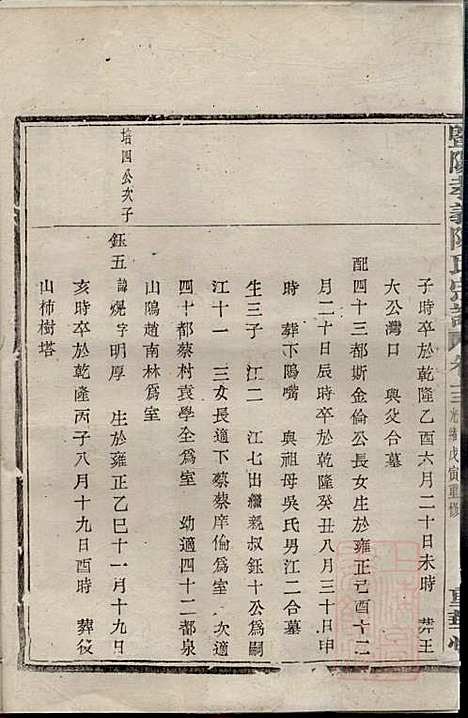 暨陽孝義陳氏宗譜 卷十三 光緒戊寅重修
子時卒於乾隆乙酉六月二十日未時 葬王
大公灣口 與父合墓
配四十三都斯金倫公長女生於雍正己酉十二
月二十日辰時卒於乾隆癸丑八月三十日申
時 葬下隖嘴 與祖母吳氏男江二合墓
生三子 江二 江七出繼親叔鈺十公爲嗣
江十一 三女長適下蔡蔡庠倫爲室 次適
四十都蔡村袁學全爲室 幼適四十二都泉
山隖趙南林爲室
培四公次子
鈺五 諱焜字明厚 生於雍正乙巳十一月十九日
亥時卒於乾隆丙子八月十九日酉時 葬後
山柿樹塔